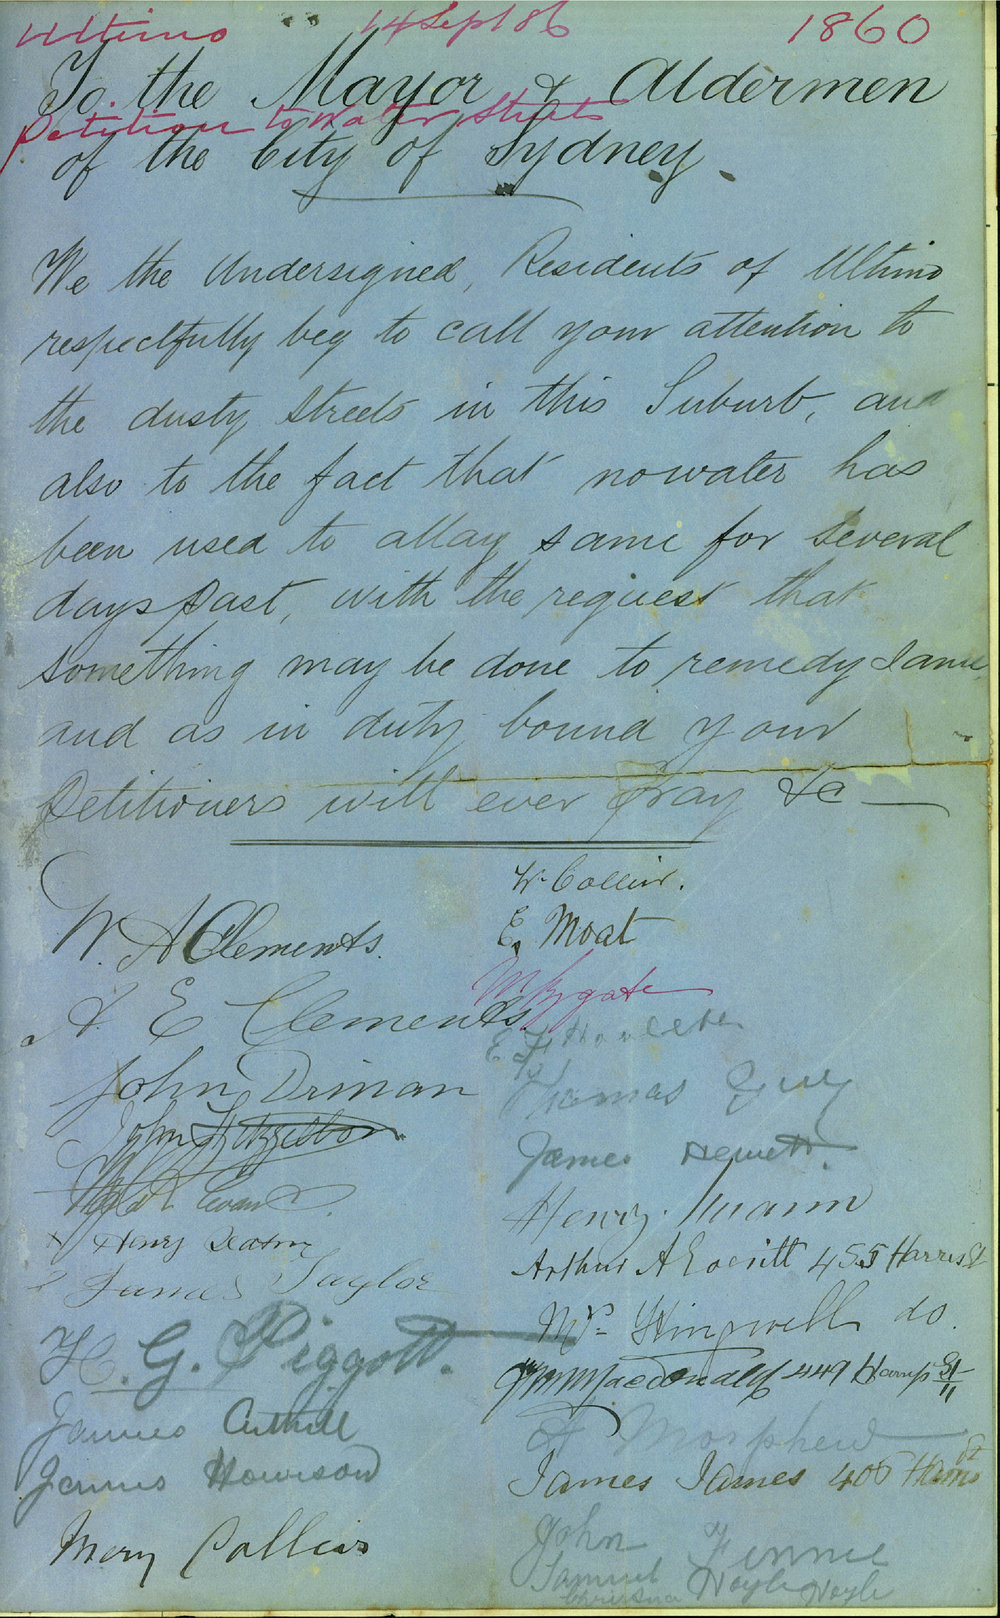 Ultimo 14 Sept 86 1860
To the Mayor & Aldermen
Petition to Water Streets
of the City of Sydney.
We the Undersigned, Residents of Ultimo
respectfully beg to call your attention to
the dusty Streets in this Suburb, and
also to the fact that no water has
been used to allay same for several
days past, with the request that
something may be done to remedy same,
and as in duty bound your
Petitioners will ever pray &c
W. A Clements.
A E Clements
John Drinan
John Fitzgibbon
Evans.
Henry
James Taylor
H. G. Piggott.
James Cuthill
James Howison
Mary Collins
W. Collins.
E. Moat
Wygate
E Howlett
Thomas
James Hewett.
Henry Mann
Arthur A Everitt 455 Harris St
Mrs Hingwell do.
Macdonald 449 Harris St
Morphew
James James 400 Harris St
John Fennie
Samuel Hoyle
Christina Hoyle